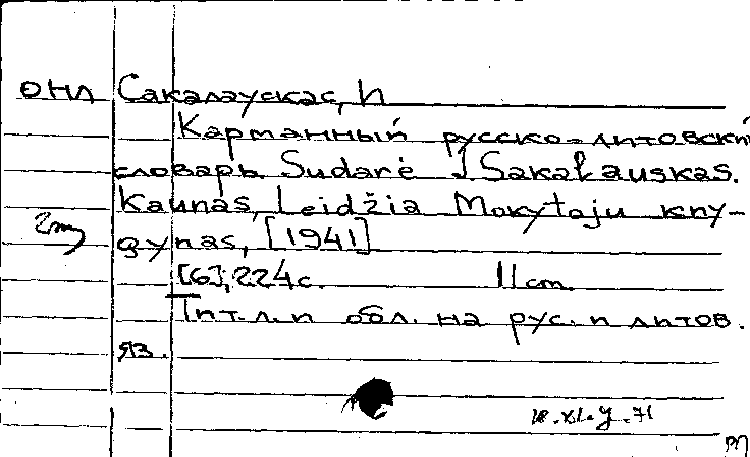 ОНЛ Сакалаускас, И
Карманный русско-литовский
словарь. Sudarė J Sakalauskas.
Kaunas, Leidžia Mokytoju kny-
gynas, [1941]
[6], 224 с. 11 cm.
Тит. л. и обл. на рус. и литов.
яз.